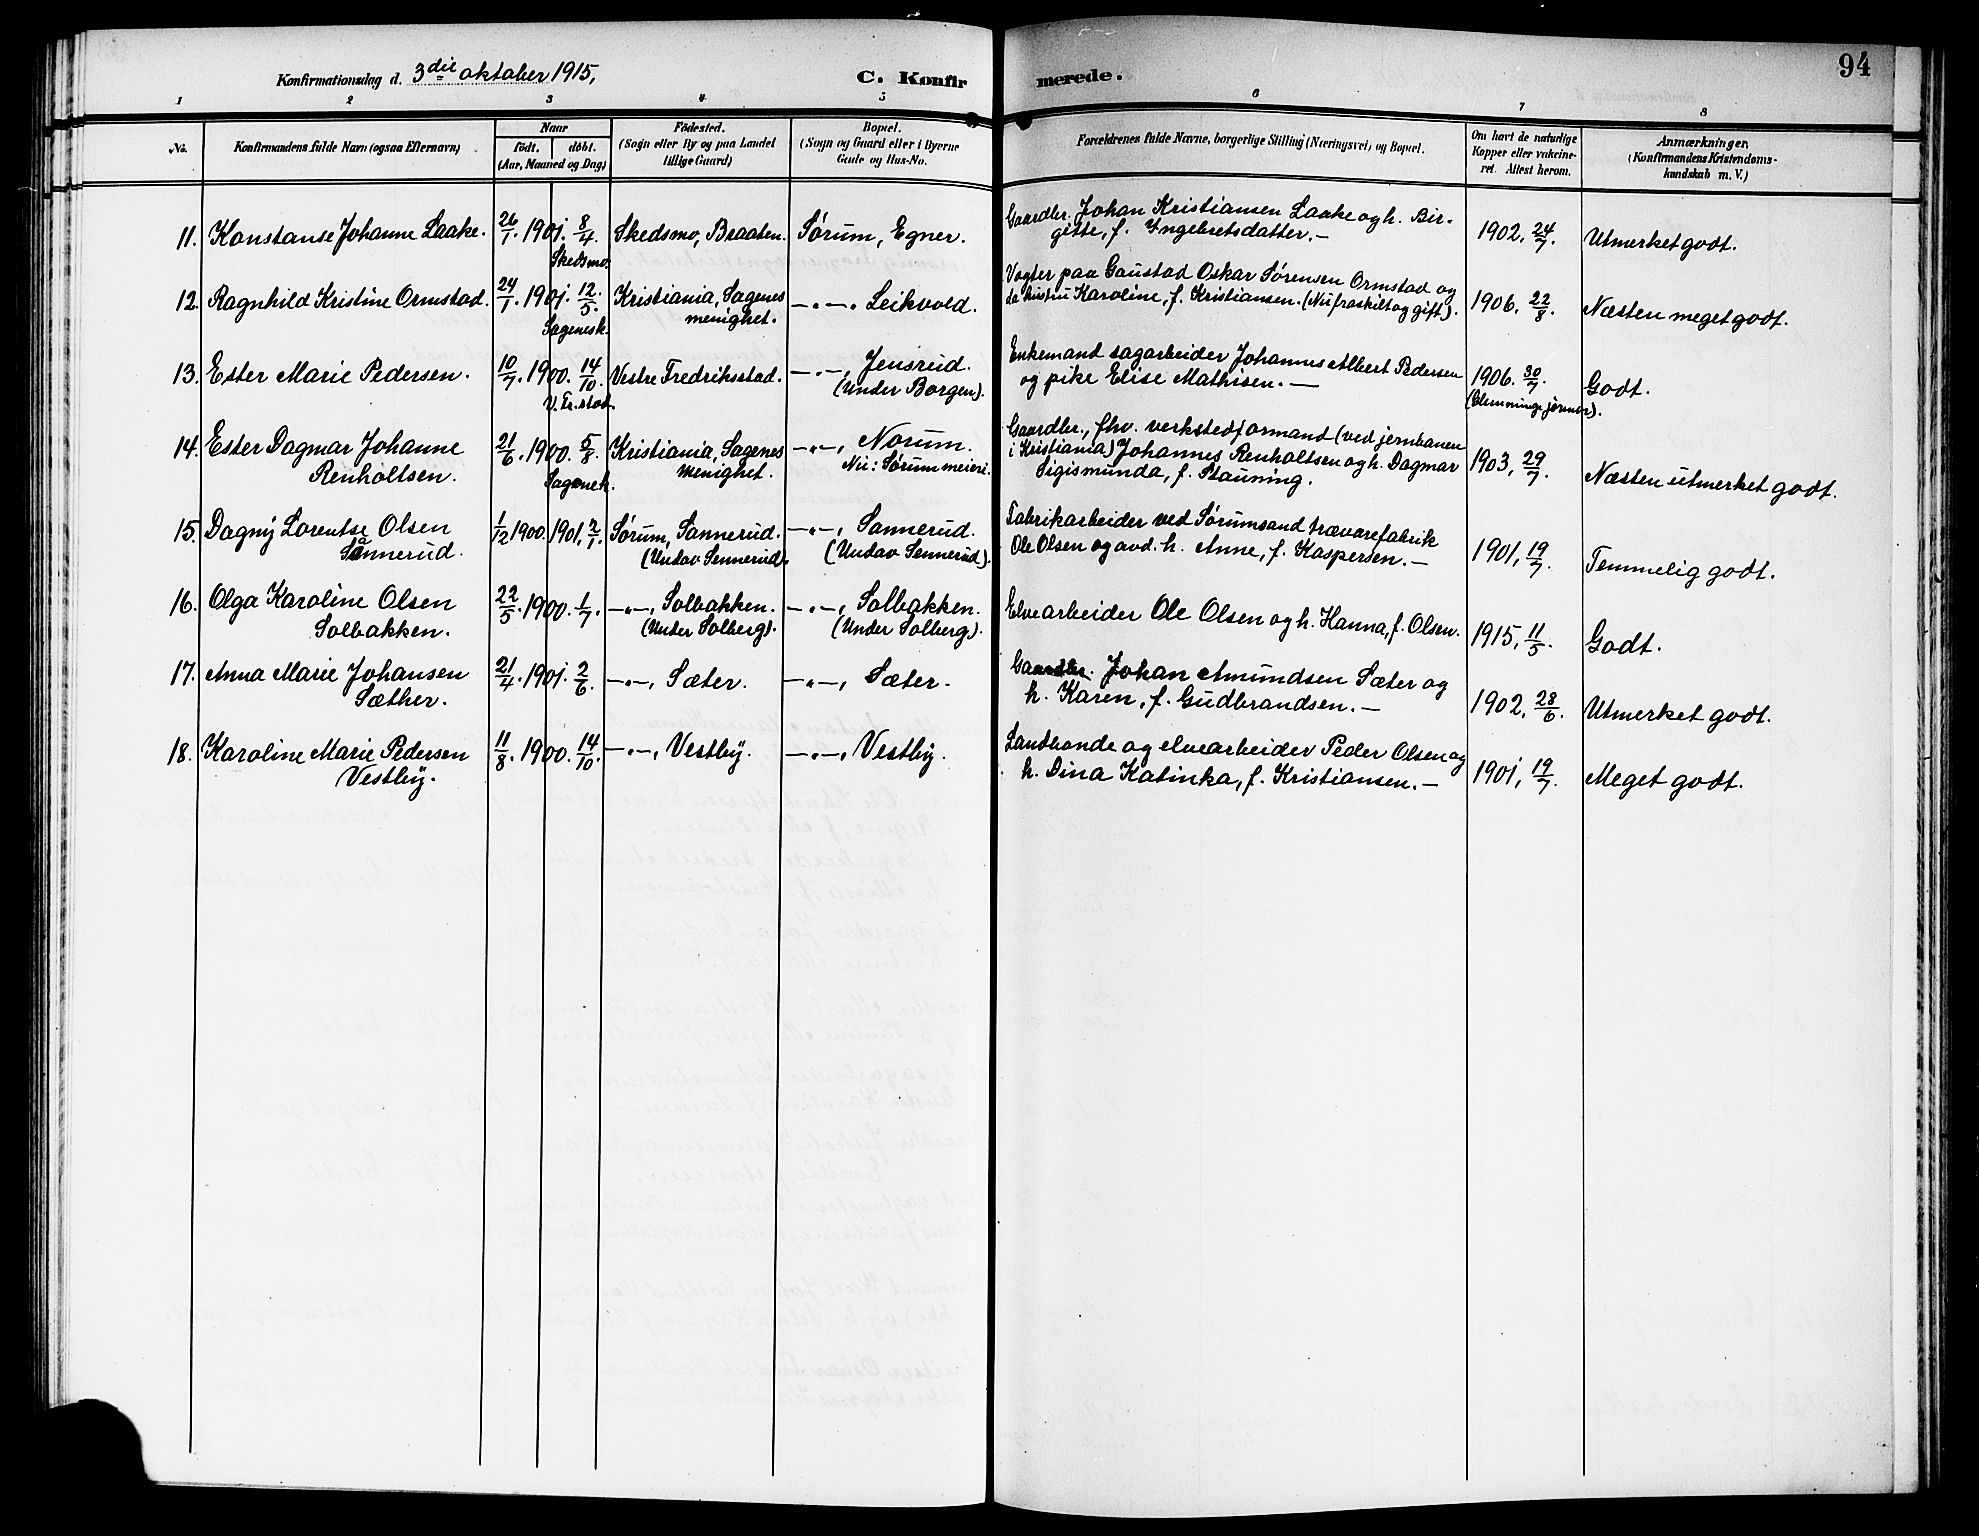 Konfirmationsdag d. 3die oktober 1915,
C. Konfir
merede.
94
1 2 3 4 5 6 7 8
No.
Konfirmandens fulde Navn (ogsaa Efternavn)
Naar
født. døbt.
(Aar, Maaned og Dag)
Fødested.
(Sogn eller By og paa Landet
tillige Gaard)
Bopæl.
(Sogn og Gaard eller i Byerne
Gade og Hus-No.
Forældrenes fulde Navne, borgerlige Stilling (Næringsvei) og Bopæl.
Om havt de naturlige
Kopper eller vakcine-
ret. Attest herom.
Anmærkninger,
(Konfirmandens Kristendoms-
kundskab m. V.)
11. Konstanse Johanne Laake. 26/1. 1901. 8/4. Skedsmo, Braaten. Sørum, Egner.
Skedsmo.
Gaardbr. Johan Kristiansen Laake og h. Bir-
gitte, f. Ingebretsdatter. —
1902, 24/7 Utmerket godt.
12. Ragnhild Kristine Ormstad. 24/1. 1901. 12/5. Kristiania, Sagenes —"—, Leikvold.
menighet.
Sagenesk.
Vogter paa Gaustad Oskar Sørensen Ormstad og
da hustru Karoline, f. Kristiansen. (Nu fraskilt og gift).
1906, 22/8. Næsten meget godt.
13. Ester Marie Pedersen. 10/7. 1900. 14/10. Vestre Fredriksstad. —"—, Jensrud.
(Under Borgen).
V. Fr.stad.
Enkemand sagarbeider Johannes Albert Pedersen
og pike Elise Mathisen. —
1906. 30/7. Godt.
14. Ester Dagmar Johanne 21/6. 1900. 5/8. Kristiania, Sagenes —"—, Norum.
Renholtsen. Sagenek. menighet. Nu: Sørum meieri.
Gaardbr., fhv. verkstedformand (ved jernbanen
i Kristiania) Johannes Renholtsen og h. Dagmar
Sigismunda, f. Stauning.
1903, 29/7. Næsten utmerket godt.
15. Dagny Lorentse Olsen 1/12 1900. 1901, 2/1. Sørum, Sannerud. —"—, Sannerud.
Sånnerud. (Undav Sennerud). (Undav Sennerud).
Fabrikarbeider ved Sørumsand trævarefabrik
Ole Olsen og avd. h. Anne, f. Kaspersen. —
1901, 19/7. Temmelig godt.
16. Olga Karoline Olsen 22/5. 1900. 1/7. —"—, Solbakken. —"—, Solbakken.
Solbakken. (Under Solberg). (Under Solberg).
Elvearbeider Ole Olsen og h. Hanna, f. Olsen.
1915, 11/5. Godt.
17. Anna Marie Johansen 21/4. 1901. 2/6. —"—, Sæter. —"—, Sæter.
Sæther.
Gaardbr. Johan Amundsen Sæter og
h. Karen, f. Gudbrandsen. —
1902, 28/6. Utmerket godt.
18. Karoline Marie Pedersen 11/8. 1900. 14/10. —"—, Vestby. —"—, Vestby.
Vestby.
Landbonde og elvearbeider Peder Olsen og
h. Dina Katinka, f. Kristiansen. —
1901, 19/7. Meget godt.